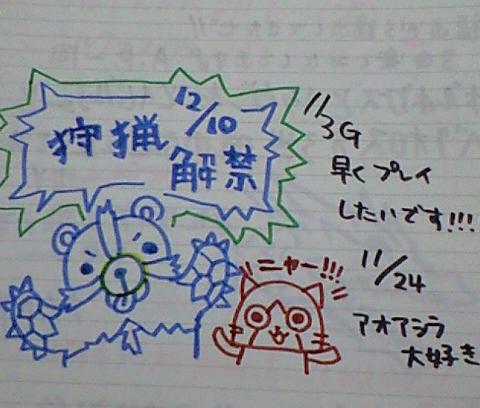 12/10
狩猟
解禁
3G
早くプレイ
したいです!!!
ニャー!!!
11/24
アオアシラ
大好き